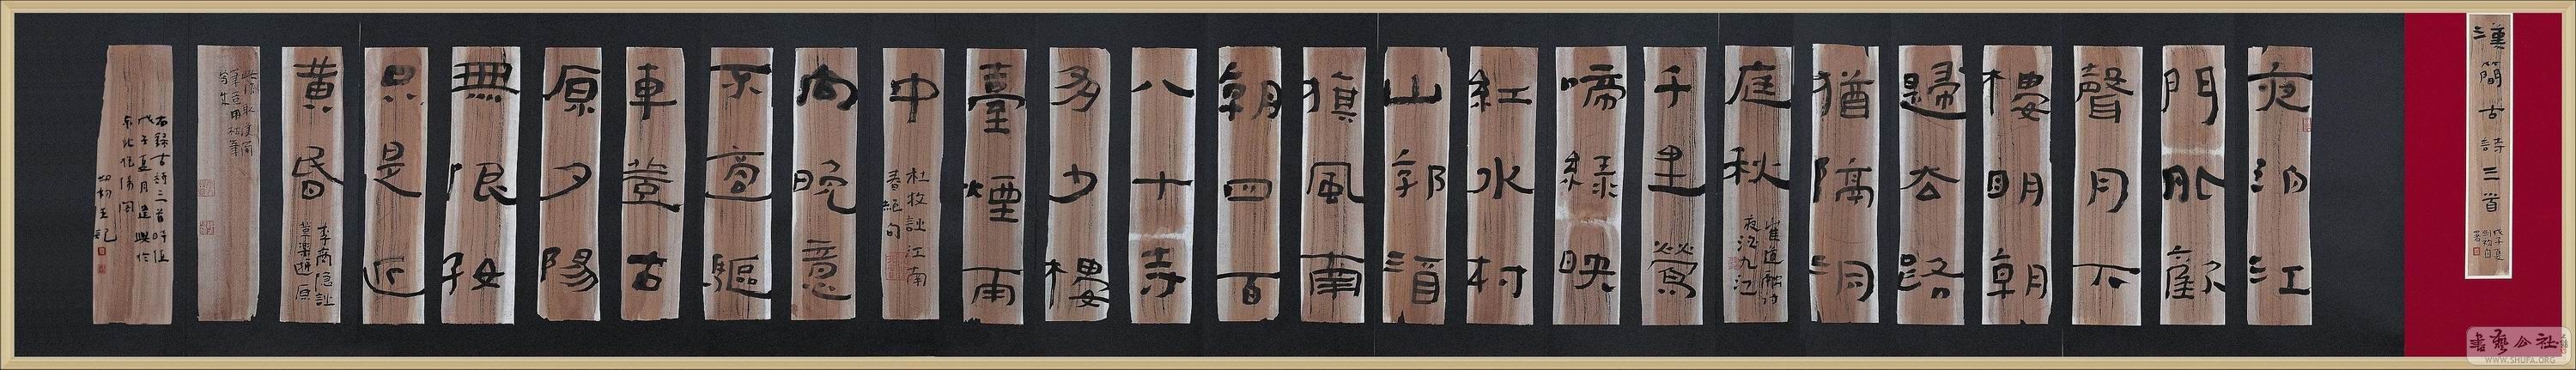 漢簡古詩三首
夜泊江
門外歡
聲月下
樓明朝
歸去路
猶隔洞
庭秋
崔道融詩
夜泊九江
千里鶯
啼綠映
紅水村
山郭酒
旗風南
朝四百
八十寺
多少樓
臺煙雨
中
杜牧詩江南
春絕句
向晚意
不適驅
車登古
原夕陽
無限好
只是近
黃昏
李商隱詩
登樂遊原
右錄古詩三首時值
戊子夏月遣興於
書藝公社
WWW.SHUFA.ORG